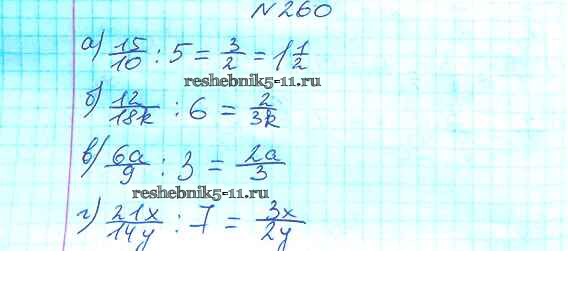 №260
а) 15/10 : 5 = 3/2 = 1 1/2
reshebnik5-11.ru
б) 12/18k : 6 = 2/3k
в) 6a/9 : 3 = 2a/3
reshebnik5-11.ru
г) 21x/14y : 7 = 3x/2y